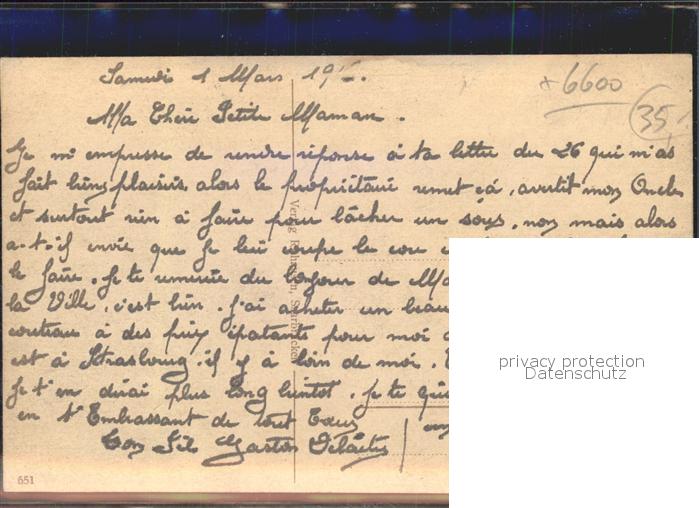 Samedi 1 Mars 19
+6600
35,
Ma Chère Petite Maman.
Je m'empresse de rendre réponse à ta lettre du 26 qui m'as
fait biens plaisirs alors le propriétaire remet çá, avertit mon Oncle
et surtout rien à faire pour lâcher un sous, non mais alors
a-t-il envie que je lui coupe le cou
le faire. Je te remercie du bonjour de Ma
la Ville, c'est bien. J'ai acheter un beau
couteau à des prix épatants pour moi
est à Strasbourg il y à loin de moi.
Je t'en dirai plus long bientot. Je te
en t'Embrassant de tout Coeur
Ton Fils Gaston
Verlag
Saarbrücken
651
privacy protection
Datenschutz